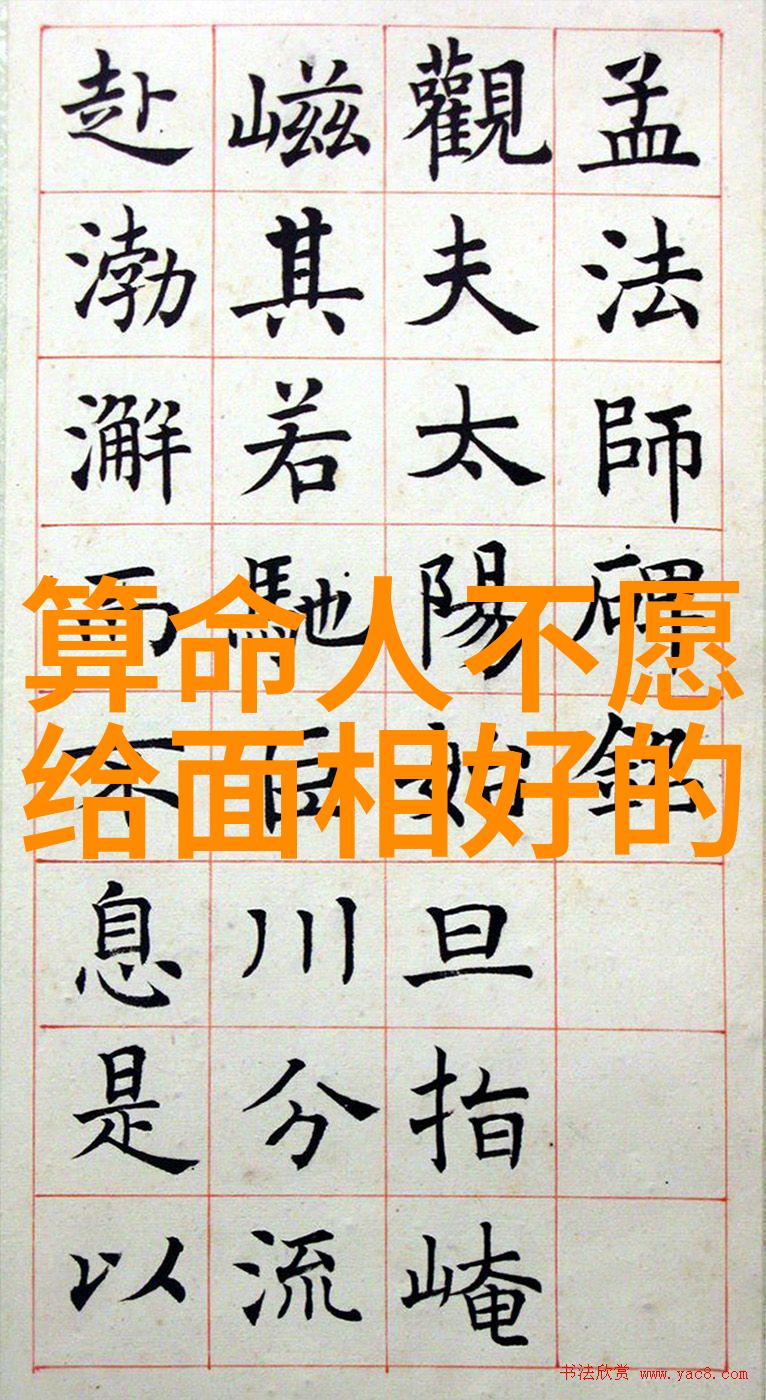 孟法師碑銘
觀夫太陽始旦指崦
嵫其若馳百川分流
赴渤澥而不息是以
算命人不愿
给面相好的
书法欣赏 www.yac8.com